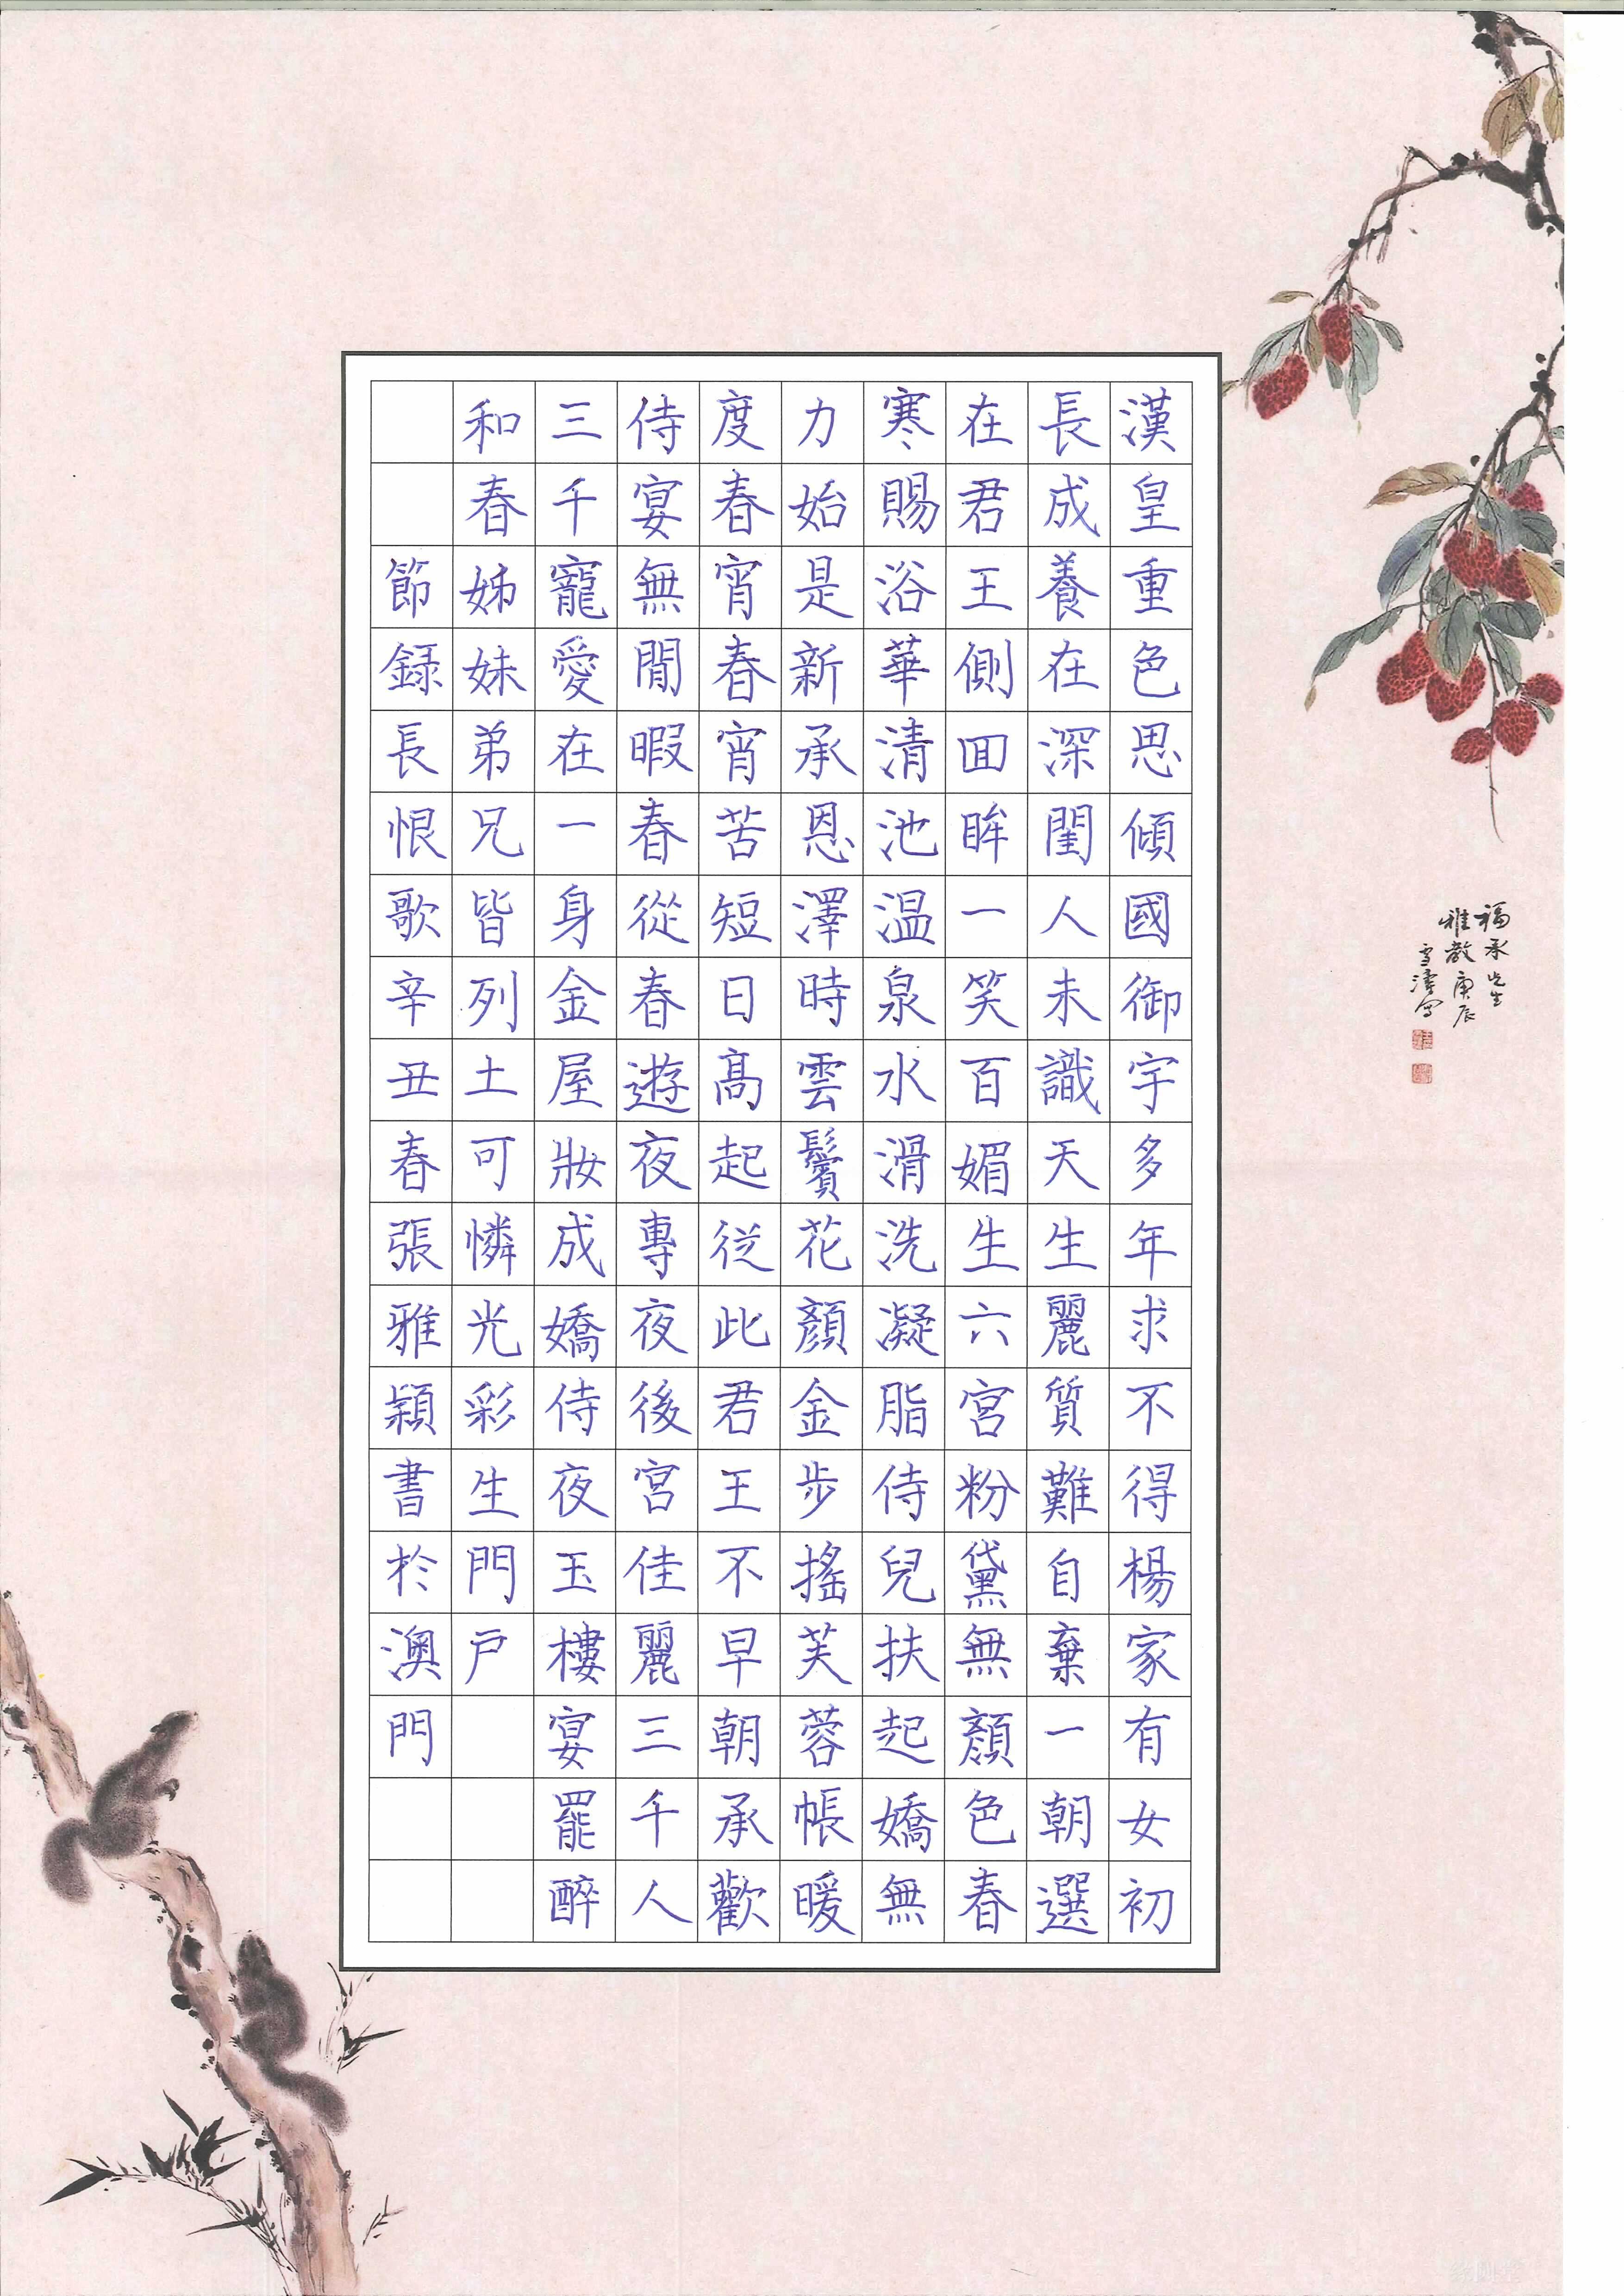 漢皇重色思傾國御宇多年求不得楊家有女初
長成養在深閨人未識天生麗質難自棄一朝選
在君王側回眸一笑百媚生六宮粉黛無顏色春
寒賜浴華清池温泉水滑洗凝脂侍兒扶起嬌無
力始是新承恩澤時雲鬢花顏金步搖芙蓉帳暖
度春宵春宵苦短日高起従此君王不早朝承歡
侍宴無閒暇春從春遊夜專夜後宮佳麗三千人
三千寵愛在一身金屋妝成嬌侍夜玉樓宴罷醉
和春姊妹弟兄皆列土可憐光彩生門戶
節録長恨歌辛丑春張雅穎書於澳門
福承先生
雅教庚辰
雪濤寫